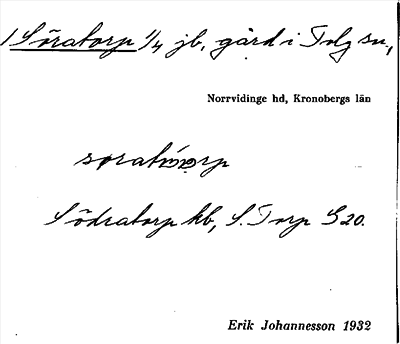 1 Söratorp 1/4 jb, gård i Tolg sn.,
Norrvidinge hd, Kronobergs län
Södratorp kb, S. Torp G 20.
Erik Johannesson 1932